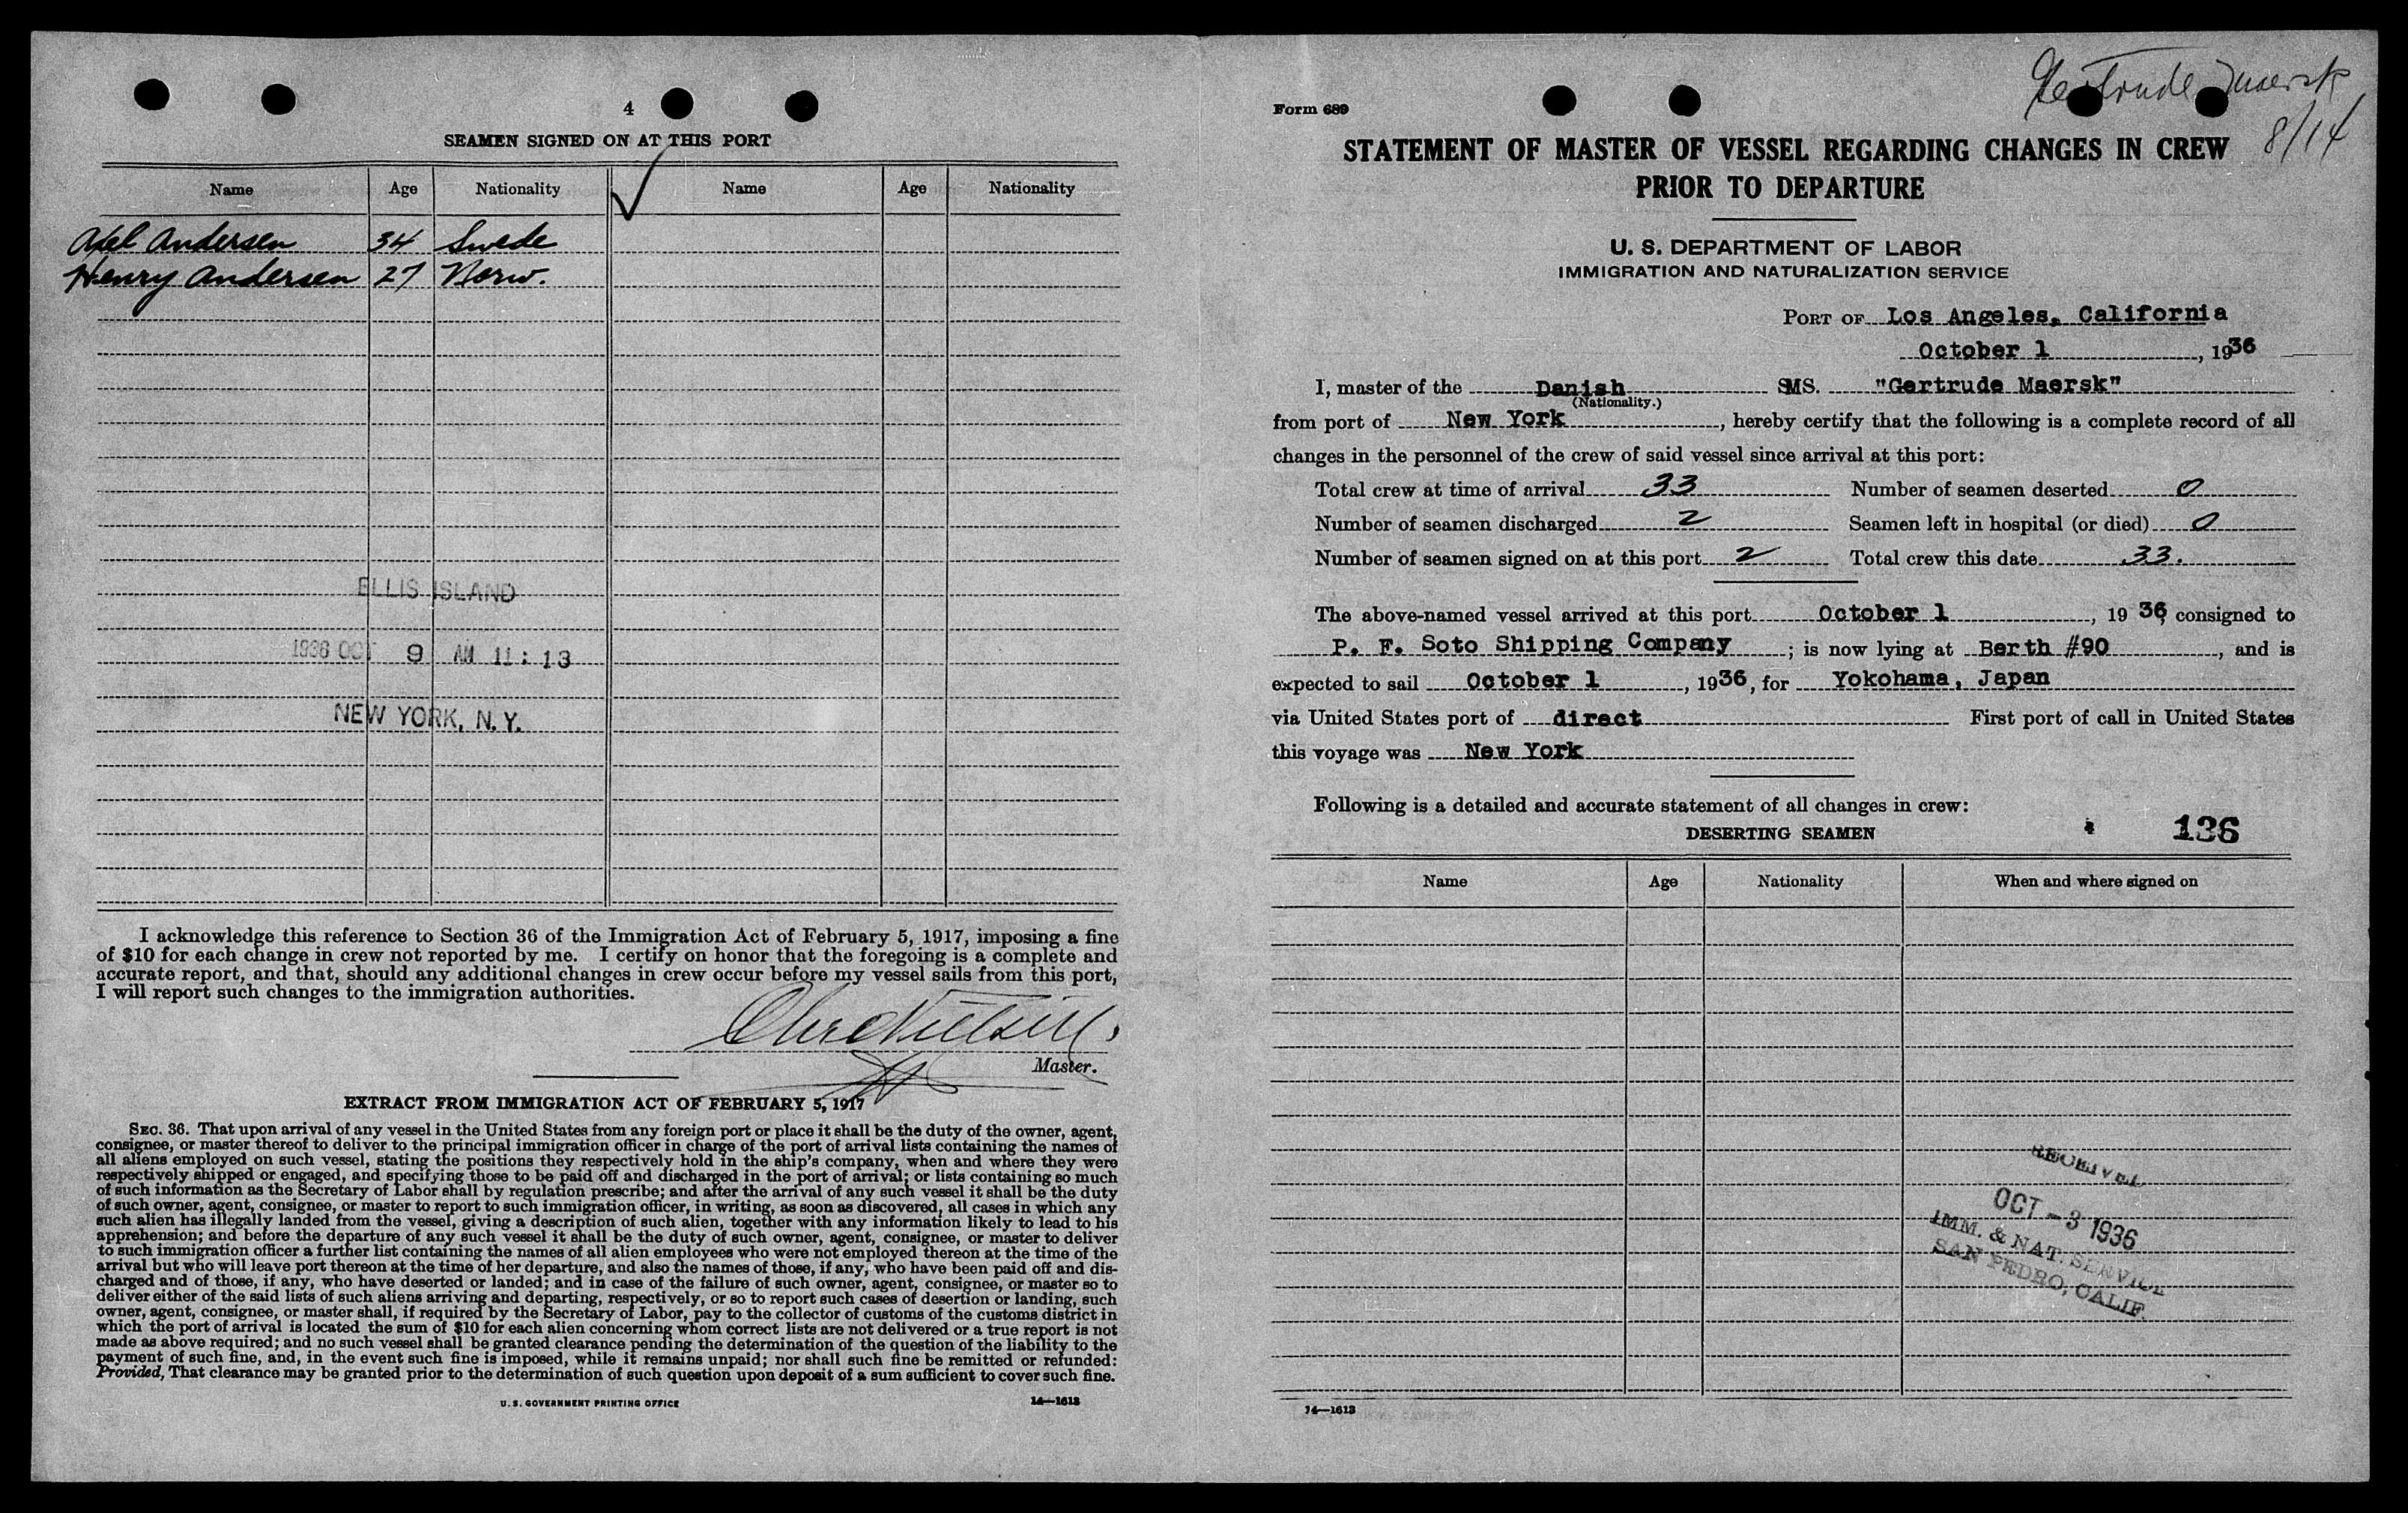 4
SEAMEN SIGNED ON AT THIS PORT
Name Age Nationality Name Age Nationality
Axel Andersen 34 Swede
Henry Andersen 27 Norw.
ELLIS ISLAND
1936 OCT 9 AM 11:13
NEW YORK, N.Y.
I acknowledge this reference to Section 36 of the Immigration Act of February 5, 1917, imposing a fine
of $10 for each change in crew not reported by me. I certify on honor that the foregoing is a complete and
accurate report, and that, should any additional changes in crew occur before my vessel sails from this port,
I will report such changes to the immigration authorities.
Master.
EXTRACT FROM IMMIGRATION ACT OF FEBRUARY 5, 1917
SEC. 36. That upon arrival of any vessel in the United States from any foreign port or place it shall be the duty of the owner, agent,
consignee, or master thereof to deliver to the principal immigration officer in charge of the port of arrival lists containing the names of
all aliens employed on such vessel, stating the positions they respectively hold in the ship's company, when and where they were
respectively shipped or engaged, and specifying those to be paid off and discharged in the port of arrival; or lists containing so much
of such information as the Secretary of Labor shall by regulation prescribe; and after the arrival of any such vessel it shall be the duty
of such owner, agent, consignee, or master to report to such immigration officer, in writing, as soon as discovered, all cases in which any
such alien has illegally landed from the vessel, giving a description of such alien, together with any information likely to lead to his
apprehension; and before the departure of any such vessel it shall be the duty of such owner, agent, consignee, or master to deliver
to such immigration officer a further list containing the names of all alien employees who were not employed thereon at the time of the
arrival but who will leave port thereon at the time of her departure, and also the names of those, if any, who have been paid off and dis-
charged and of those, if any, who have deserted or landed; and in case of the failure of such owner, agent, consignee, or master so to
deliver either of the said lists of such aliens arriving and departing, respectively, or so to report such cases of desertion or landing, such
owner, agent, consignee, or master shall, if required by the Secretary of Labor, pay to the collector of customs of the customs district in
which the port of arrival is located the sum of $10 for each alien concerning whom correct lists are not delivered or a true report is not
made as above required; and no such vessel shall be granted clearance pending the determination of the question of the liability to the
payment of such fine, and, in the event such fine is imposed, while it remains unpaid; nor shall such fine be remitted or refunded:
Provided, That clearance may be granted prior to the determination of such question upon deposit of a sum sufficient to cover such fine.
U.S. GOVERNMENT PRINTING OFFICE 14—1613
Gertrude Maersk
8/14
Form 689
STATEMENT OF MASTER OF VESSEL REGARDING CHANGES IN CREW
PRIOR TO DEPARTURE
U. S. DEPARTMENT OF LABOR
IMMIGRATION AND NATURALIZATION SERVICE
PORT OF Los Angeles, California
October 1, 1936
I, master of the Danish SMS. "Gertrude Maersk"
(Nationality.)
from port of New York, hereby certify that the following is a complete record of all
changes in the personnel of the crew of said vessel since arrival at this port:
Total crew at time of arrival 33 Number of seamen deserted 0
Number of seamen discharged 2 Seamen left in hospital (or died) 0
Number of seamen signed on at this port 2 Total crew this date 33.
The above-named vessel arrived at this port October 1, 1936, consigned to
P. F. Soto Shipping Company; is now lying at Berth #90, and is
expected to sail October 1, 1936, for Yokohama, Japan
via United States port of direct First port of call in United States
this voyage was New York
Following is a detailed and accurate statement of all changes in crew:
DESERTING SEAMEN 136
Name Age Nationality When and where signed on
RECEIVED
OCT -3 1936
IMM. & NAT. SERVICE
SAN PEDRO, CALIF.
14—1613